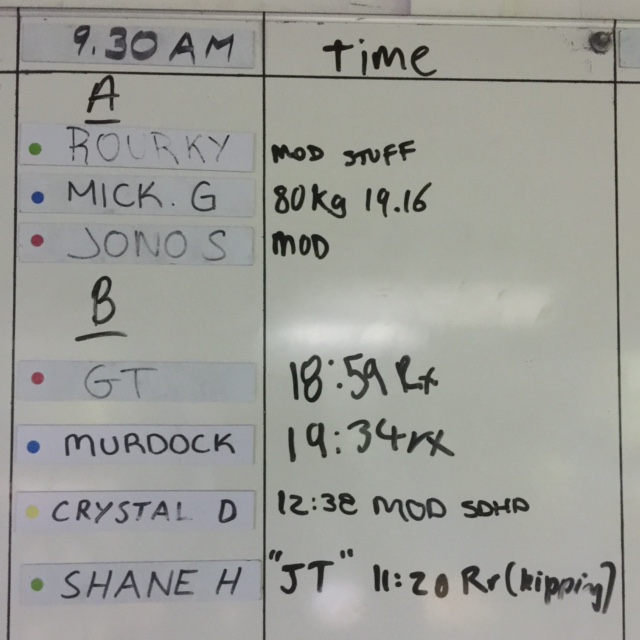 9.30 AM time
A
ROURKY MOD STUFF
MICK. G 80kg 19.16
JONO S MOD
B
GT 18:59 Rx
MURDOCK 19:34 rx
CRYSTAL D 12:38 MOD SDHP
SHANE H "JT" 11:20 Rx (kipping)